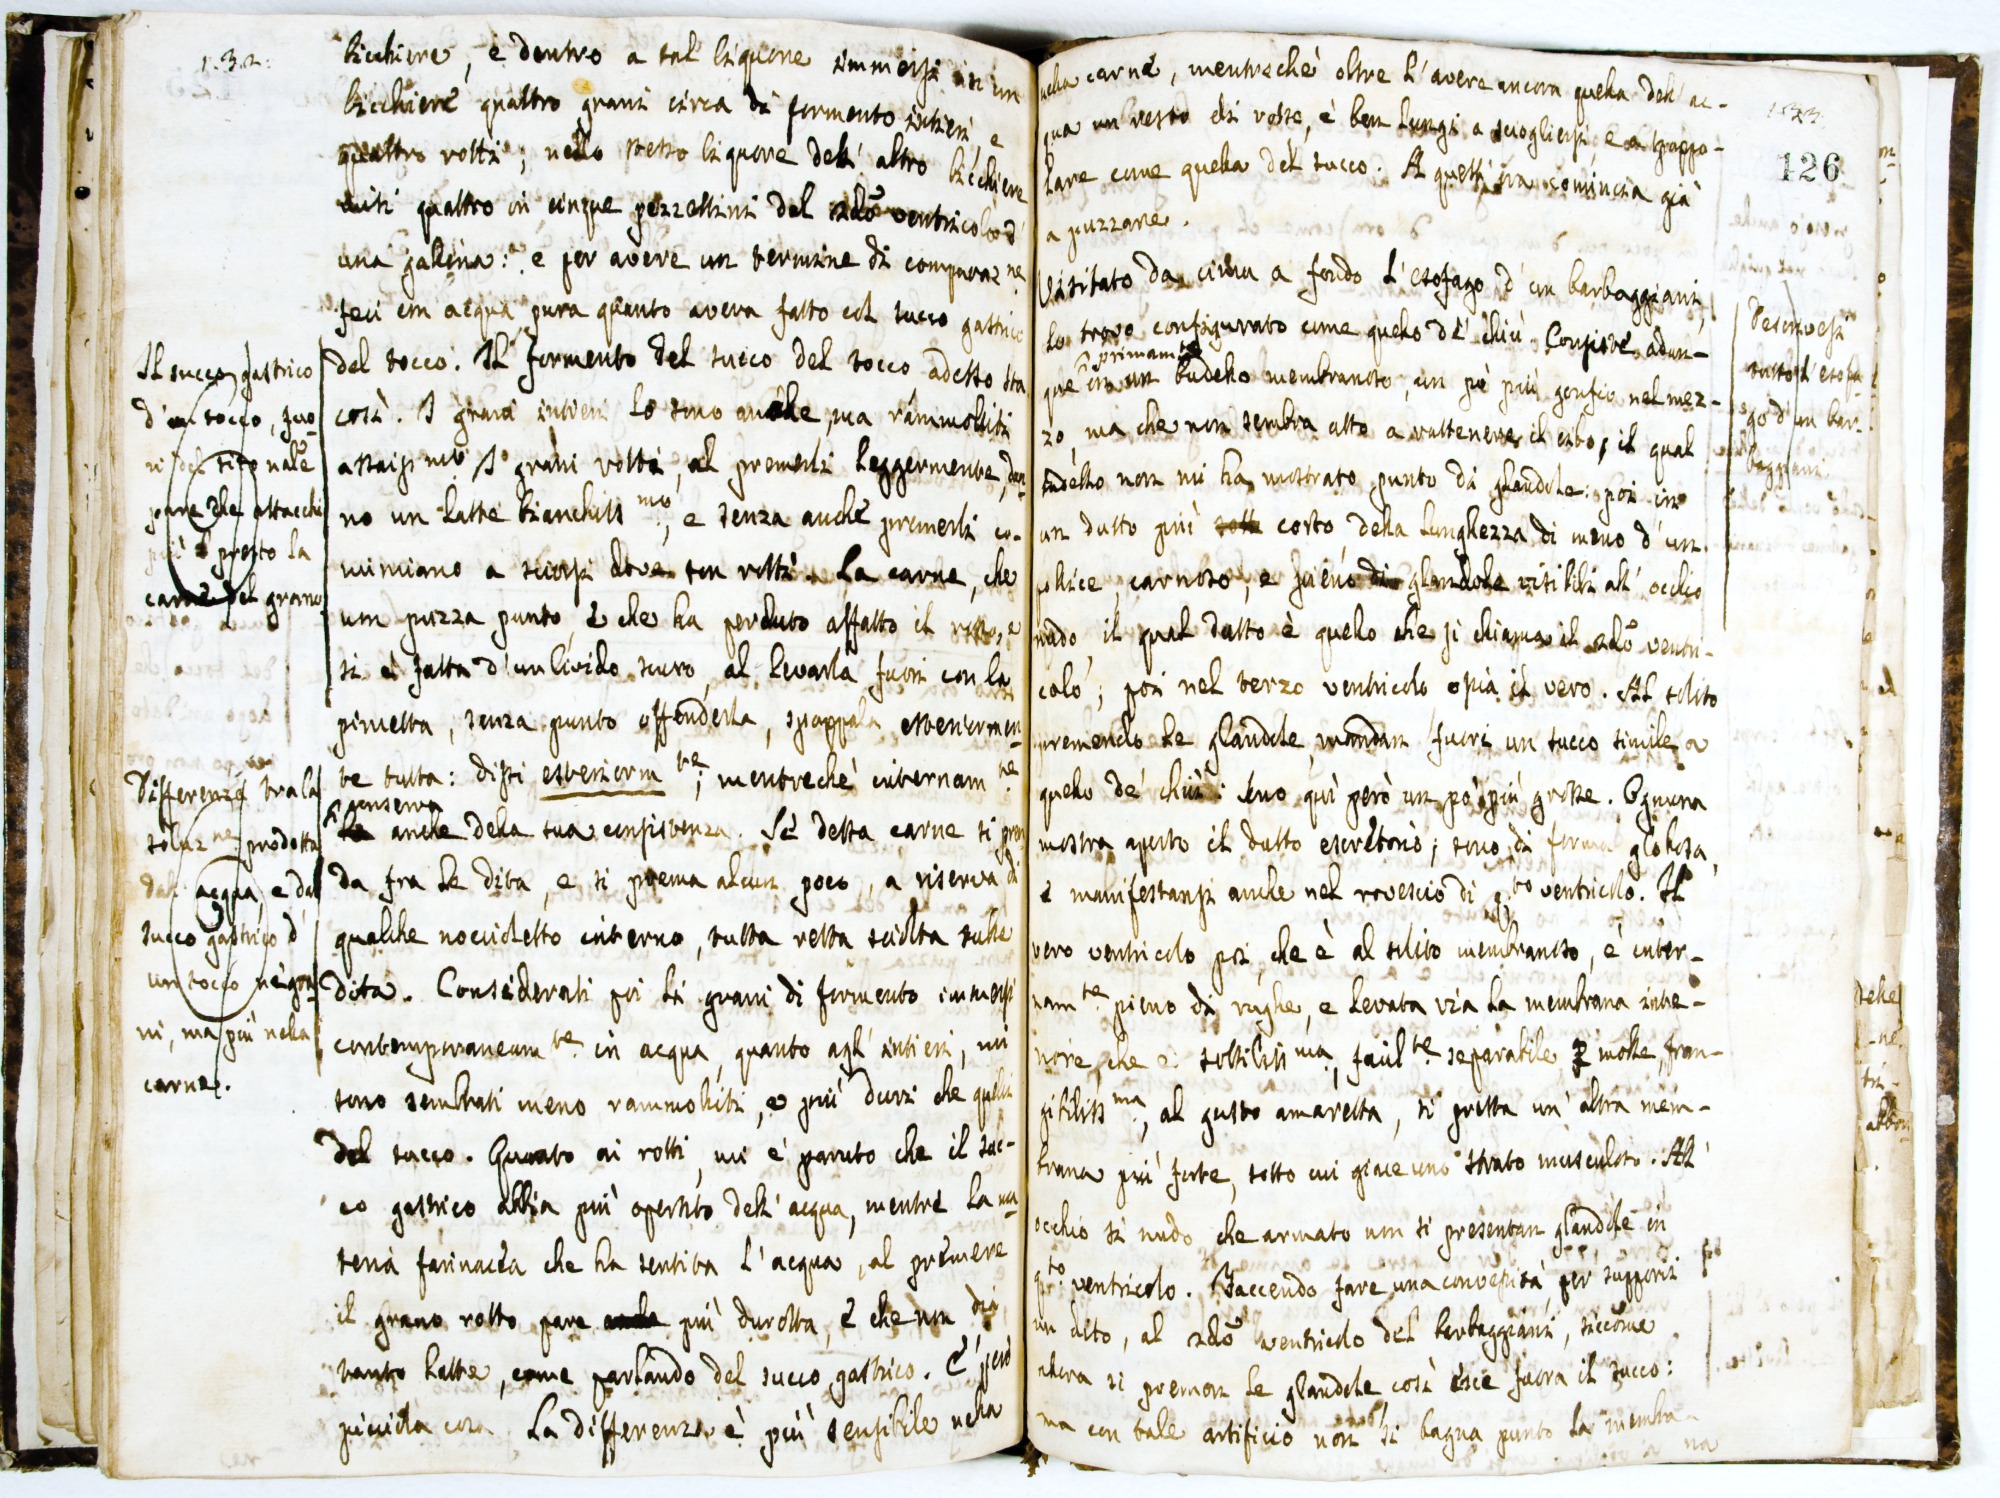 132.
bicchiere, e dentro a tal liquore immersi in un
bicchiere quattro grani circa di formento intieri, e
quattro rotti; nello stesso liquore dell' altro bicchiere
misi quattro in cinque pezzettini del 2do ventricolo d'
una gallina: e per avere un termine di comparaz.ne
feci in acqua pura quanto aveva fatto col succo gastrico
del tocco. Il formento del succo del tocco adesso sta
così. I grani intieri lo sono anche, ma rammolliti
assaiss.mo I grani rotti, al premerli leggermente, dan-
no un latte bianchiss.mo, e senza anche premerli co-
minciano a sciorsi dove son rotti. La carne, che
non puzza punto, e che ha perduto affatto il rosso, e
si è fatta d'un livido scuro, al levarla fuori con la
pinzetta, senza punto offenderla, spappola esteriormen-
te tutta: dissi esteriorm.te; mentrechè internam.te
conserva
anche della sua consistenza. Se detta carne si pren-
da fra le dita, e si prema alcun poco, a riserva di
qualche noccioletto interno, tutta resta sciolta sulle
dita. Considerati poi li grani di formento immersi
contemporaneam.te in acqua, quanto agl' intieri, mi
sono sembrati meno rammolliti, e più duri che quelli
del succo. Quanto ai rotti, mi è paruto che il suc-
co gastrico abbia più operato dell' acqua, mentre la ma-
teria farinacea che ha sentita l'acqua, al premere
il grano rotto pare più duretta, e che non dia
tanto latte, come parlando del succo gastrico. È però
picciola cosa. La differenza è più sensibile nella
Il succo gastrico
d'un tocco, fuo-
ri del sito nat.le
pare che attacchi
più presto la
carne del grano
Differenza tra la
soluz.ne prodotta
dall' acqua, e dal
succo gastrico d'
un tocco ne' gra-
ni, ma più nella
carne.
133.
126
nella carne, mentrechè oltre l'avere ancora quella dell' ac-
qua un resto di rosso, è ben lungi a sciogliersi e a spappo-
lare come quella del succo. A quest' ora comincia già
a puzzare.
Visitato da cima a fondo l'esofago d'un barbaggiani,
lo trovo configurato come quello de' chiù. Consiste adun-
primam.te
que in un budello membranoso, un po' più gonfio nel mez-
zo, ma che non sembra atto a rattenere il cibo, il qual
budello non mi ha mostrato punto di glandole: poi in
un dutto più corto della lunghezza di meno d'un
pollice, carnoso, e pieno di glandole visibili all' occhio
nudo, il qual dutto è quello che si chiama il 2do ventri-
colo; poi nel terzo ventricolo ossia il vero. Al solito
premendo le glandole, mandan fuori un succo simile a
quello de' chiù: sono quì però un po' più grosse. Ognuna
mostra aperto il dutto escretorio; sono di forma globosa,
e manifestansi anche nel rovescio di q.to ventricolo. Il
vero ventricolo poi, che è al solito membranoso, è inter-
nam.te pieno di rughe, e levata via la membrana inte-
riore, che è sottiliss.ma, facil.te separabile, molle, fran-
gibiliss.ma, al gusto amaretta, si presta un' altra mem-
brana più forte, sotto cui giace uno strato musculoso. All'
occhio sì nudo che armato non si presentan glandole in
q.to ventricolo. Faccendo fare una convessità per supporvi
un dito, al 2do ventricolo del barbaggiani, siccome
allora si premon le glandole così esce fuora il succo:
ma con tale artificio non si bagna punto la membra-
na
Descrivesi
tutto l'esofa-
go d'un bar-
baggiani.